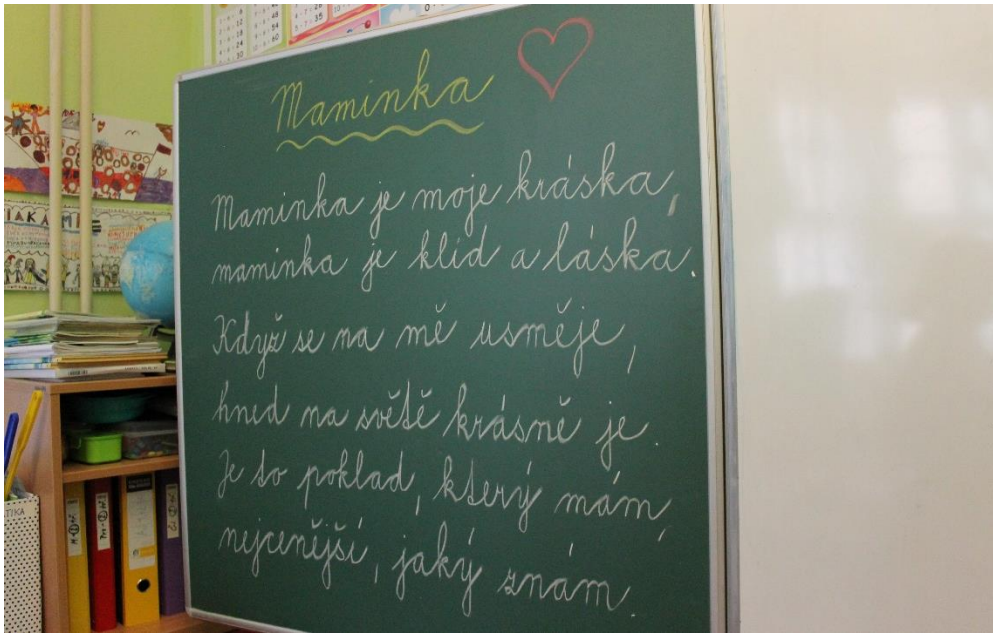 Maminka
Maminka je moje kráska,
maminka je klid a láska.
Když se na mě usměje,
hned na světě krásně je.
Je to poklad, který mám,
nejcenější, jaký znám.
JAKÁ
TIKA